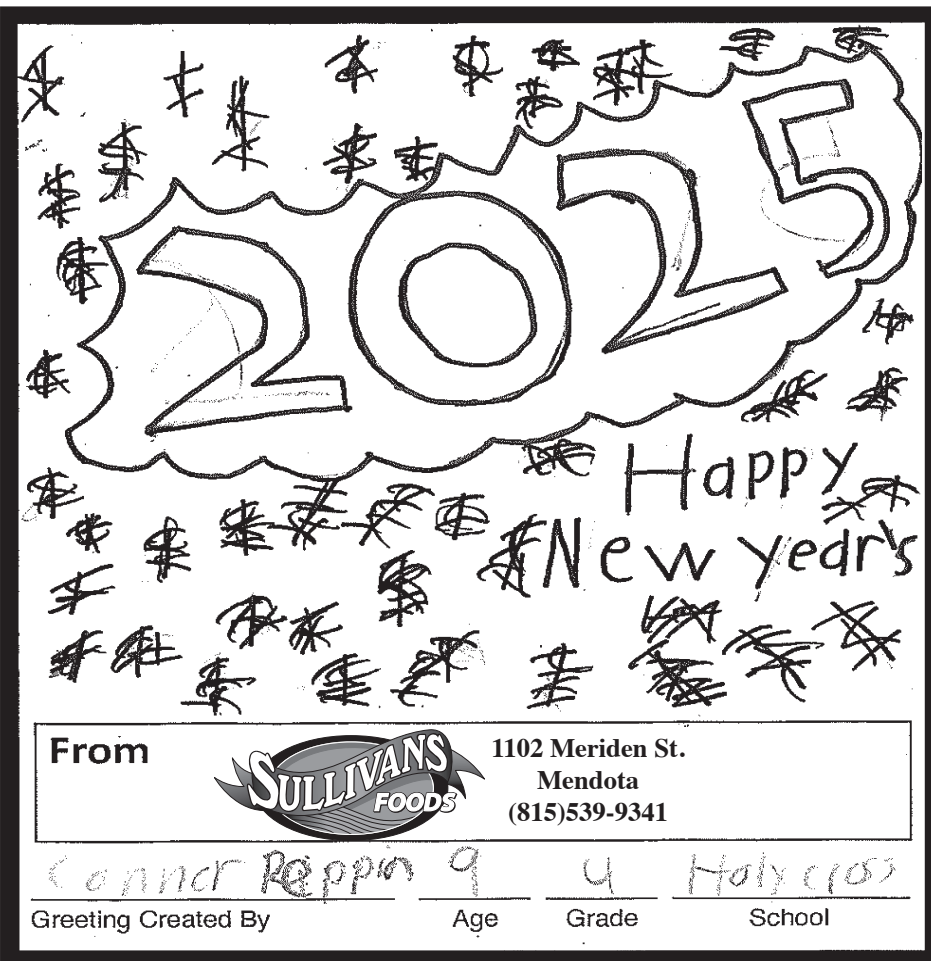 2025
Happy
New year's
From
SULLIVANS
FOODS
1102 Meriden St.
Mendota
(815)539-9341
Connor 9 4 Holy cross
Greeting Created By Age Grade School